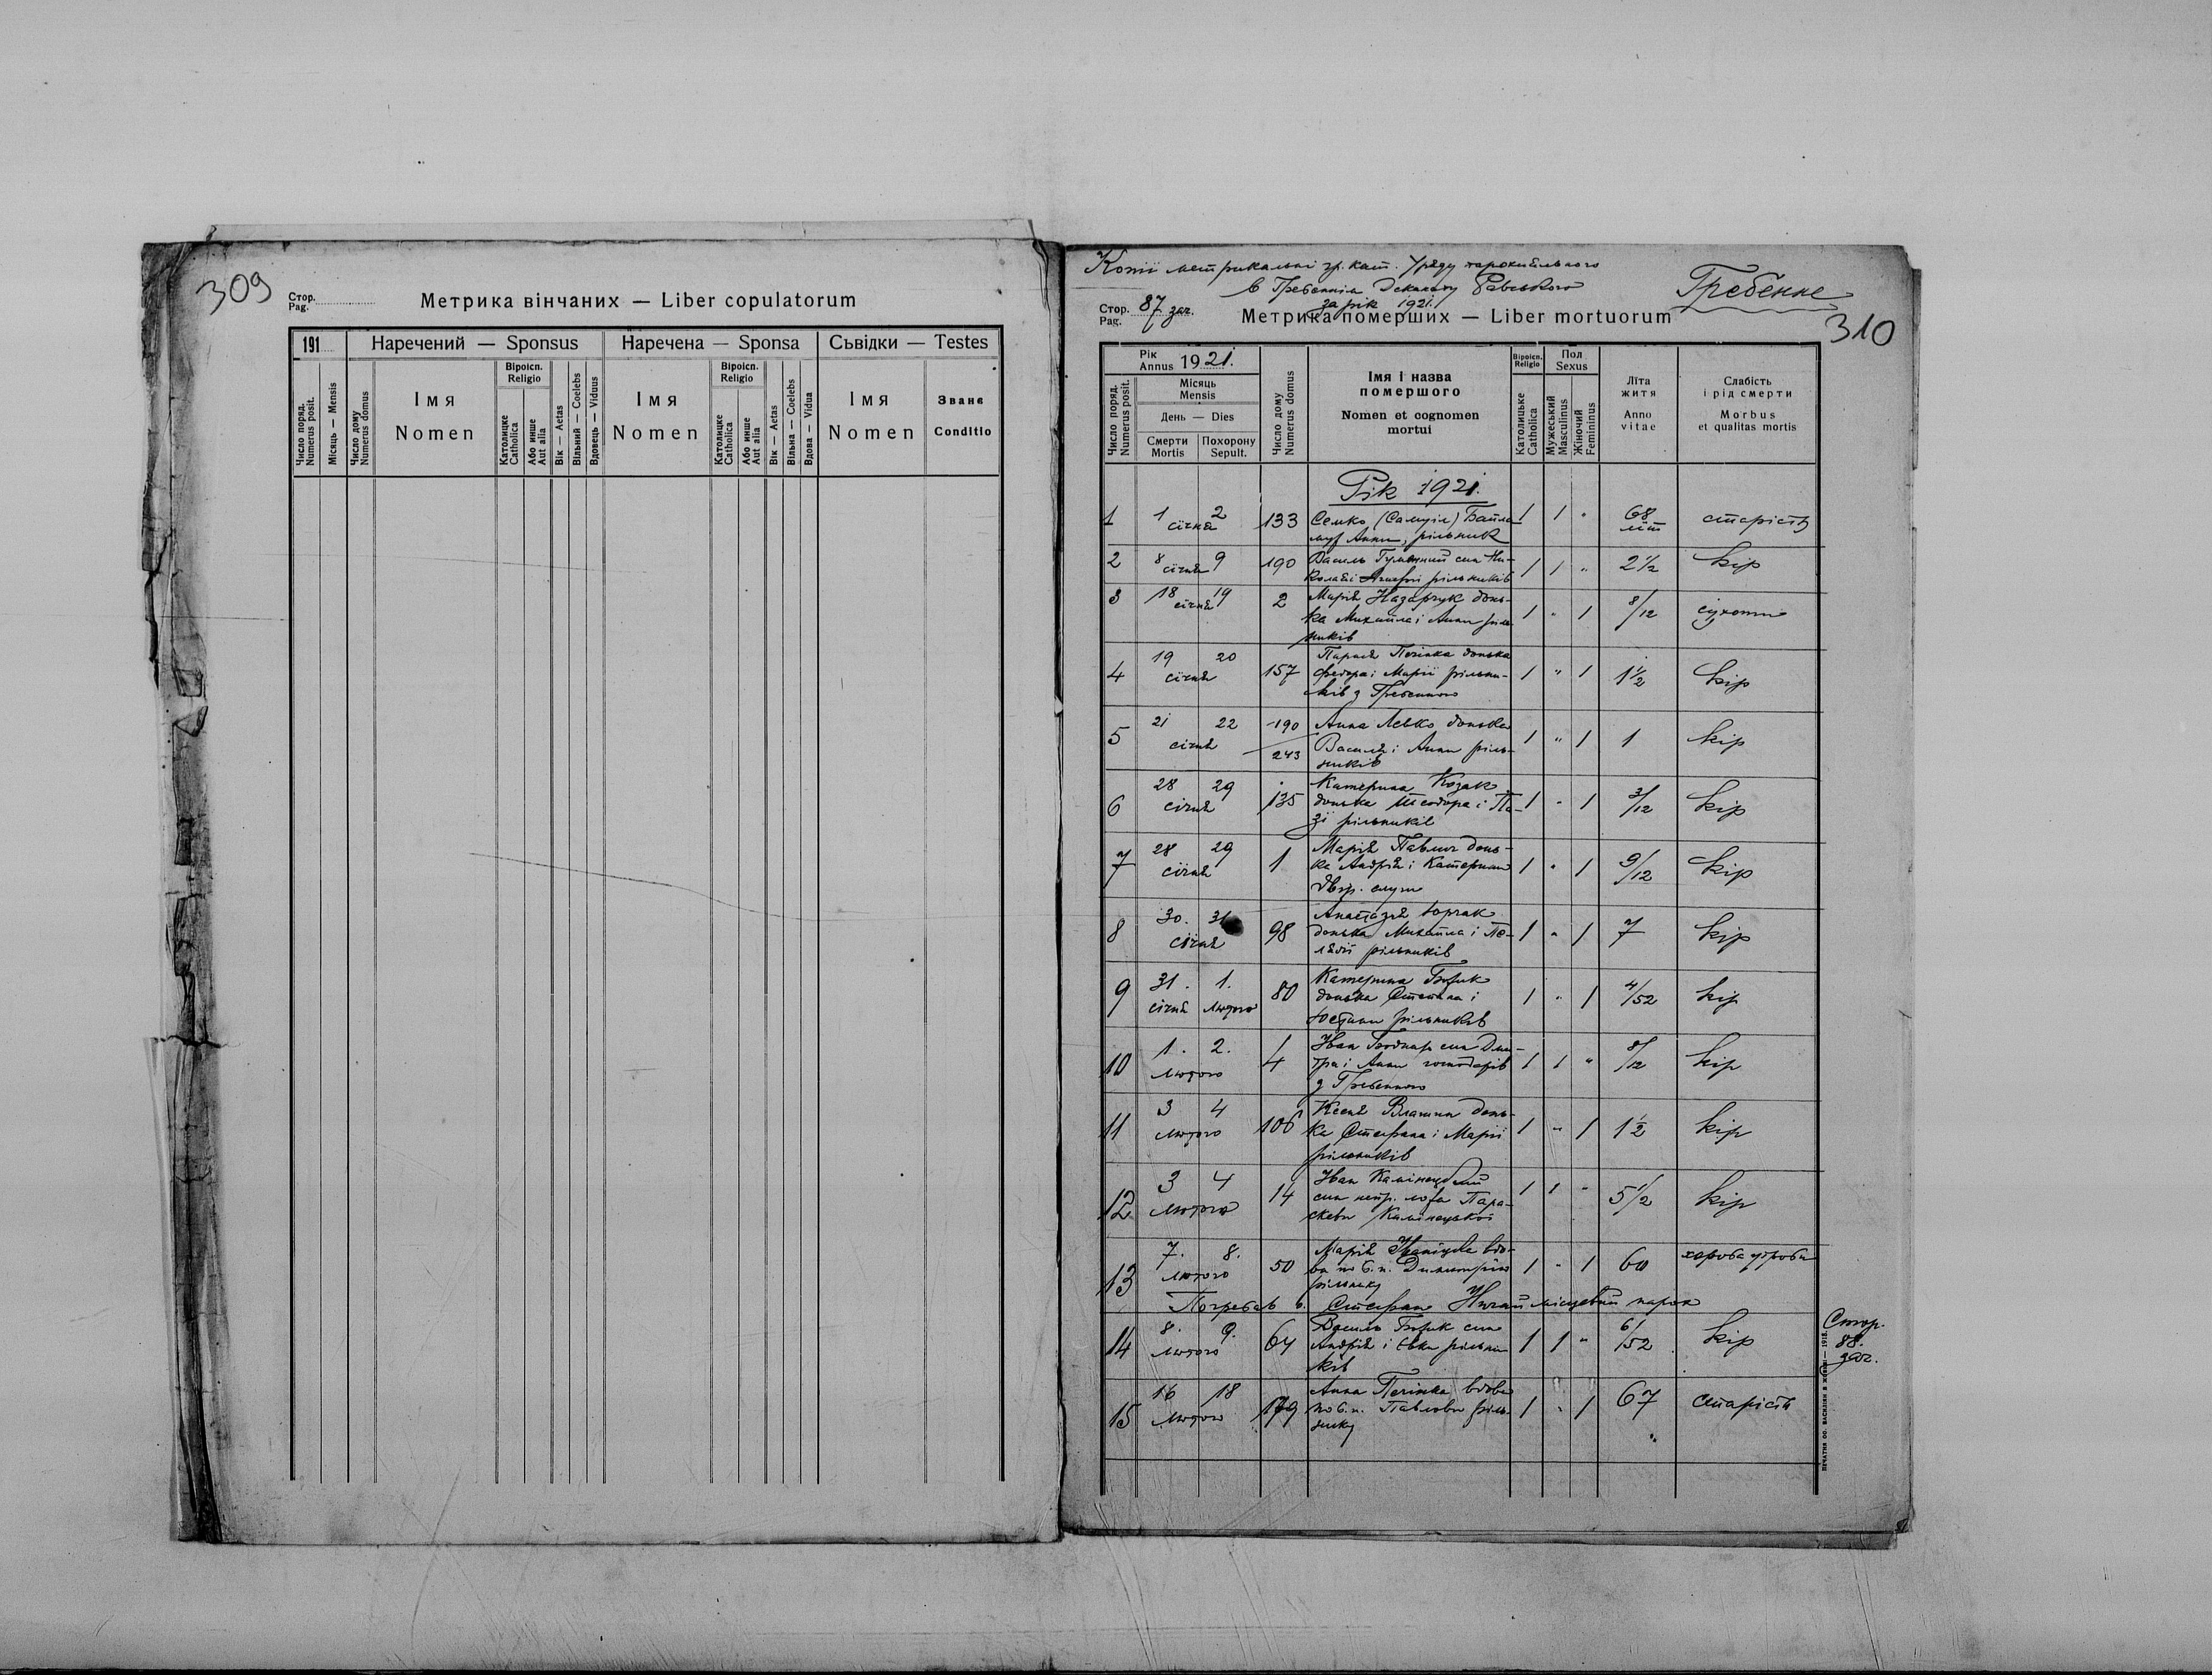 309
Стор.
Pag.
Метрика вінчаних — Liber copulatorum
191
Наречений — Sponsus
Наречена — Sponsa
Сьвідки — Testes
Число поряд.
Numerus posit.
Місяць — Mensis
Число дому
Numerus domus
Імя
Nomen
Віроісп.
Religio
Католицке
Catholica
Або инше
Aut alia
Вік — Aetas
Вільний — Coelebs
Вдовець — Viduus
Імя
Nomen
Віроісп.
Religio
Католицке
Catholica
Або инше
Aut alia
Вік — Aetas
Вільна — Coelebs
Вдова — Vidua
Імя
Nomen
Званє
Conditio
Копії метрикальні гр. кат. Уряду парохіяльного
в Гребеннім Деканату Равського
за рік 1921.
Гребенне
310
Стор.
Pag.
87 зач.
Метрика померших — Liber mortuorum
Рік
Annus 1921.
Число поряд.
Numerus posit.
Місяць
Mensis
День — Dies
Смерти
Mortis
Похорону
Sepult.
Число дому
Numerus domus
Імя і назва
помершого
Nomen et cognomen
mortui
Віроісп.
Religio
Католицьке
Catholica
Пол
Sexus
Мужеський
Masculinus
Жіночий
Femininus
Літа
житя
Anno
vitae
Слабість
і рід смерти
Morbus
et qualitas mortis
Рік 1921.
1 1 2 січня 133 Семко (Самуіл)
муж Анни, рільник
1 1 " 68 літ старість
2 8 9 січня 190 Василь син Ни-
колая і рільників
1 1 " 2½ кір
3 18 19 січня 2 Марія Назарчук донь-
ка Михайла і Анни ріль-
ників
1 " 1 8/12 сухоти
4 19 20 січня 157 Печінка донька
Федора і Марії рільни-
ків з Гребенного
1 " 1 1½ кір
5 21 22 січня 190/243 Анна Левко донька
Василя і Анни ріль-
ників
1 " 1 1 кір
6 28 29 січня 135 Катерина Козак
донька Теодора і Па-
зі рільників
1 " 1 3/12 кір
7 28 29 січня 1 Марія Павлич донь-
ка Андрія і Катерини
двір. слуги
1 " 1 9/12 кір
8 30. 31 січня 98 Анастазія
донька Михайла і Пе-
лядії рільників
1 " 1 7 кір
9 31. січня 1. лютого 80 Катерина
донька Степана і
Юстини рільників
1 " 1 4/52 кір
10 1. 2. лютого 4 Іван Боднар син Дми-
тра і Анни господарів
з Гребенного
1 1 " 8/12 кір
11 3 4 лютого 106 Ксеня донь-
ка Стефана і Марії
рільників
1 " 1 1½ кір
12 3 4 лютого 14 Іван Камінецький
син непр. ложа Пара-
скеви Камінецької
1 1 " 5½ кір
13 7. 8. лютого 50 Марія вдо-
ва по б. п. Димитрію
рільнику
1 " 1 60 хороба утроби
Погребав о. Стефан місцевий парох
14 8. 9. лютого 64 Василь син
Андрія і Еви рільни
ків
1 1 " 6/52 кір
Стор.
88.
зач.
15 16 18 лютого 179 Анна Печінка вдова
по б. п. Павлови ріль-
нику
1 " 1 67 старість
ПЕЧАТНЯ ОО. ВАСИЛІЯН В ЖОВКВІ — 1918.